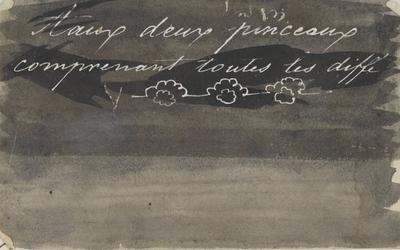 deux pinceaux
comprenant toutes les diffé